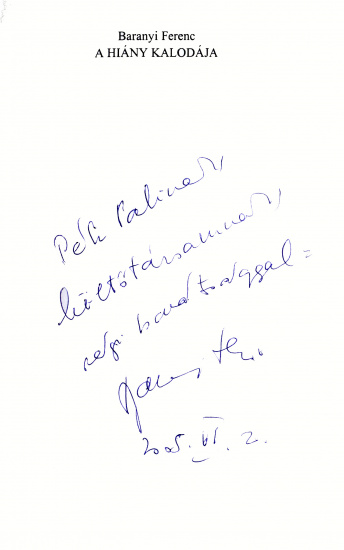 Baranyi Ferenc
A HIÁNY KALODÁJA
Péli Palinak,
költőtársamnak,
régi barátsággal =
2005. VI. 2.